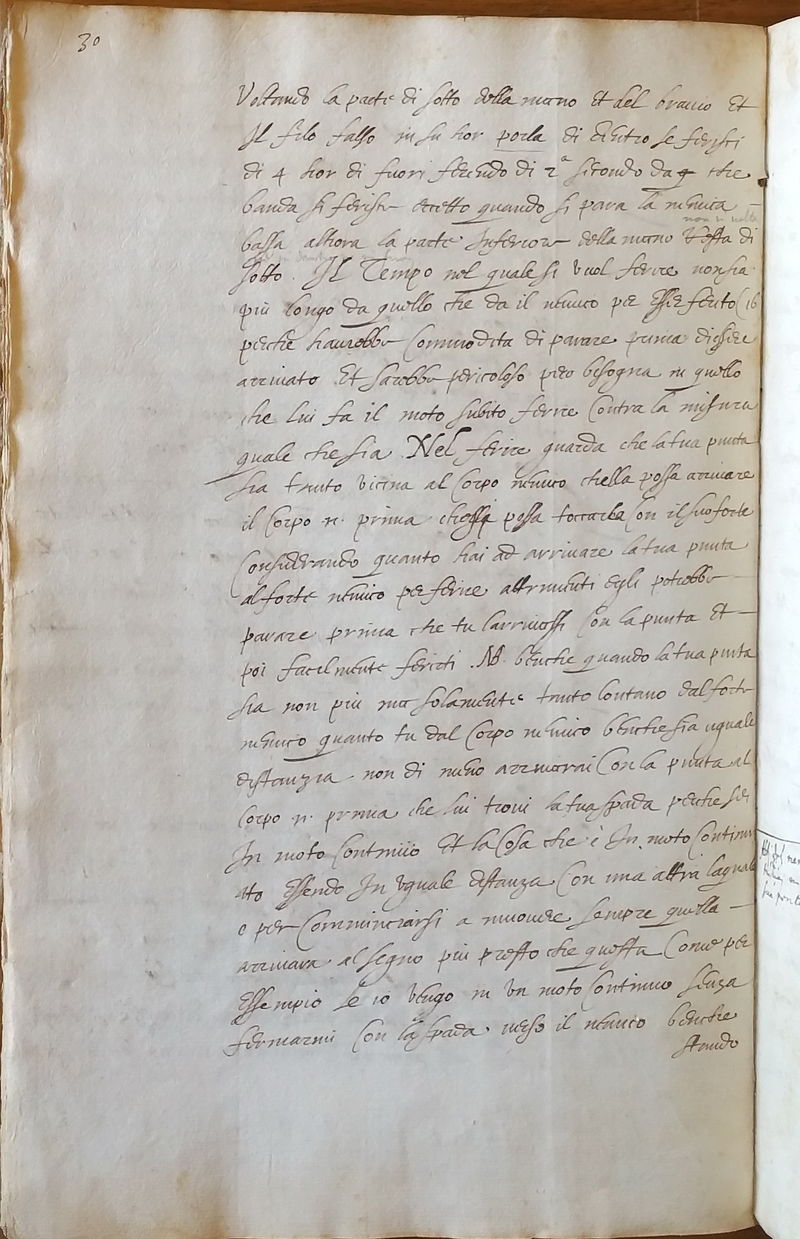 30
Voltando la parte di sotto della mano et del bracio et
Il filo falso in su hor porla di dentro se ferisci
di 4 hor di fuori ferendo di 2a secondo da q che
banda si ferisce eccetto quando si para la nemica
non si volta
bassa alhora la parte Inferiore della mano volta di
sotto. Il Tempo nel quale si vuol ferire non sia
più longo da quello che da il nemico per esser ferito (16
perche haurebbe Commodita di parare prima di essere
arrivato et sarebbe pericoloso pero bisogna in quello
che lui fa il moto subito ferire Contra la misura
quale che sia. Nel ferire guarda che la tua punta
sia tanto vicina al Corpo nemico chella possa arrivare
il Corpo n. prima possa toccarla Con il suo forte
Considerando quanto hai ad arrivare la tua punta
al forte nemico per ferire altrimenti egli potrebbe
parare prima che tu larrivassi Con la punta et
poi facilmente ferirti. NB. benche quando la tua punta
sia non più ma solamente tanto lontano dal forte
nemico quanto tu dal Corpo nemico benche sia uguale
distanzia non di meno arrivarai Con la punta al
Corpo n. prima che lui trovi la tua spada perche sei
In moto Continuo et la Cosa che è In moto Continu
ato essendo In uguale distanza Con una altra laquale
e per Comminciarsi a muovere sempre quella
arrivara al segno più presto che questa Come per
essempio se io vengo in un moto Continuo senza
fermarmi Con la spada verso il nemico benche
stando